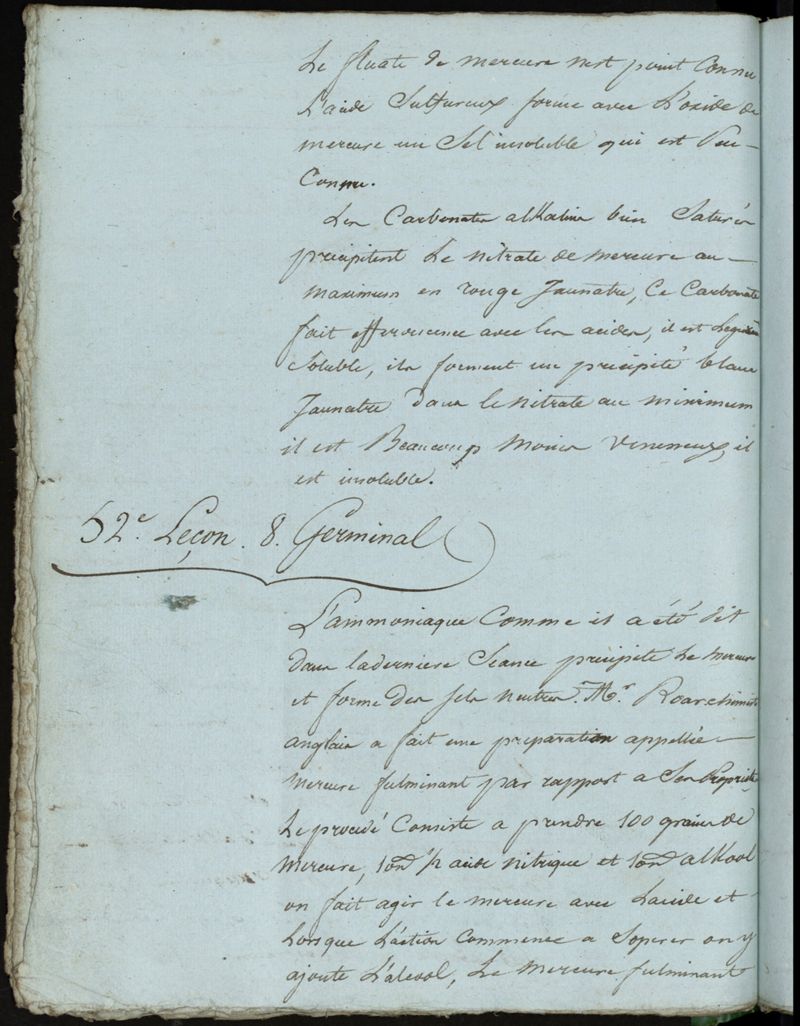 Le fluate de mercure nest point Connu
L'acide Sulfureux forme avec L'oxide de
mercure un Sel insoluble qui est Peu
Connu.
Les Carbonates alkalins bien Saturés
precipitent Le nitrate de mercure au
maximum en rouge Jaunatre, Ce Carbonate
fait effervescence avec les acides, il est Legerement
Soluble, ils forment un precipité blanc
Jaunatre dans le nitrate au minimum
il est Beaucoup Moins Veneneux, il
est insoluble.
52e. Leçon. 8. Germinal
L'ammoniaque Comme il a été dit
dans laderniere Seance precipite Le Mercure
et forme des sels neutres. Mr. Roar chimiste
anglais a fait une preparation appellée
Mercure fulminant par rapport a Ses Propriétés
Le procédé Consiste a prendre 100 grains de
Mercure, 1 on 1/2 acide nitrique et 1 on alkool
on fait agir le mercure avec Lacide et
Lorsque L'action Commence a Soperer on y
ajoute L'alcool, Le Mercure fulminant